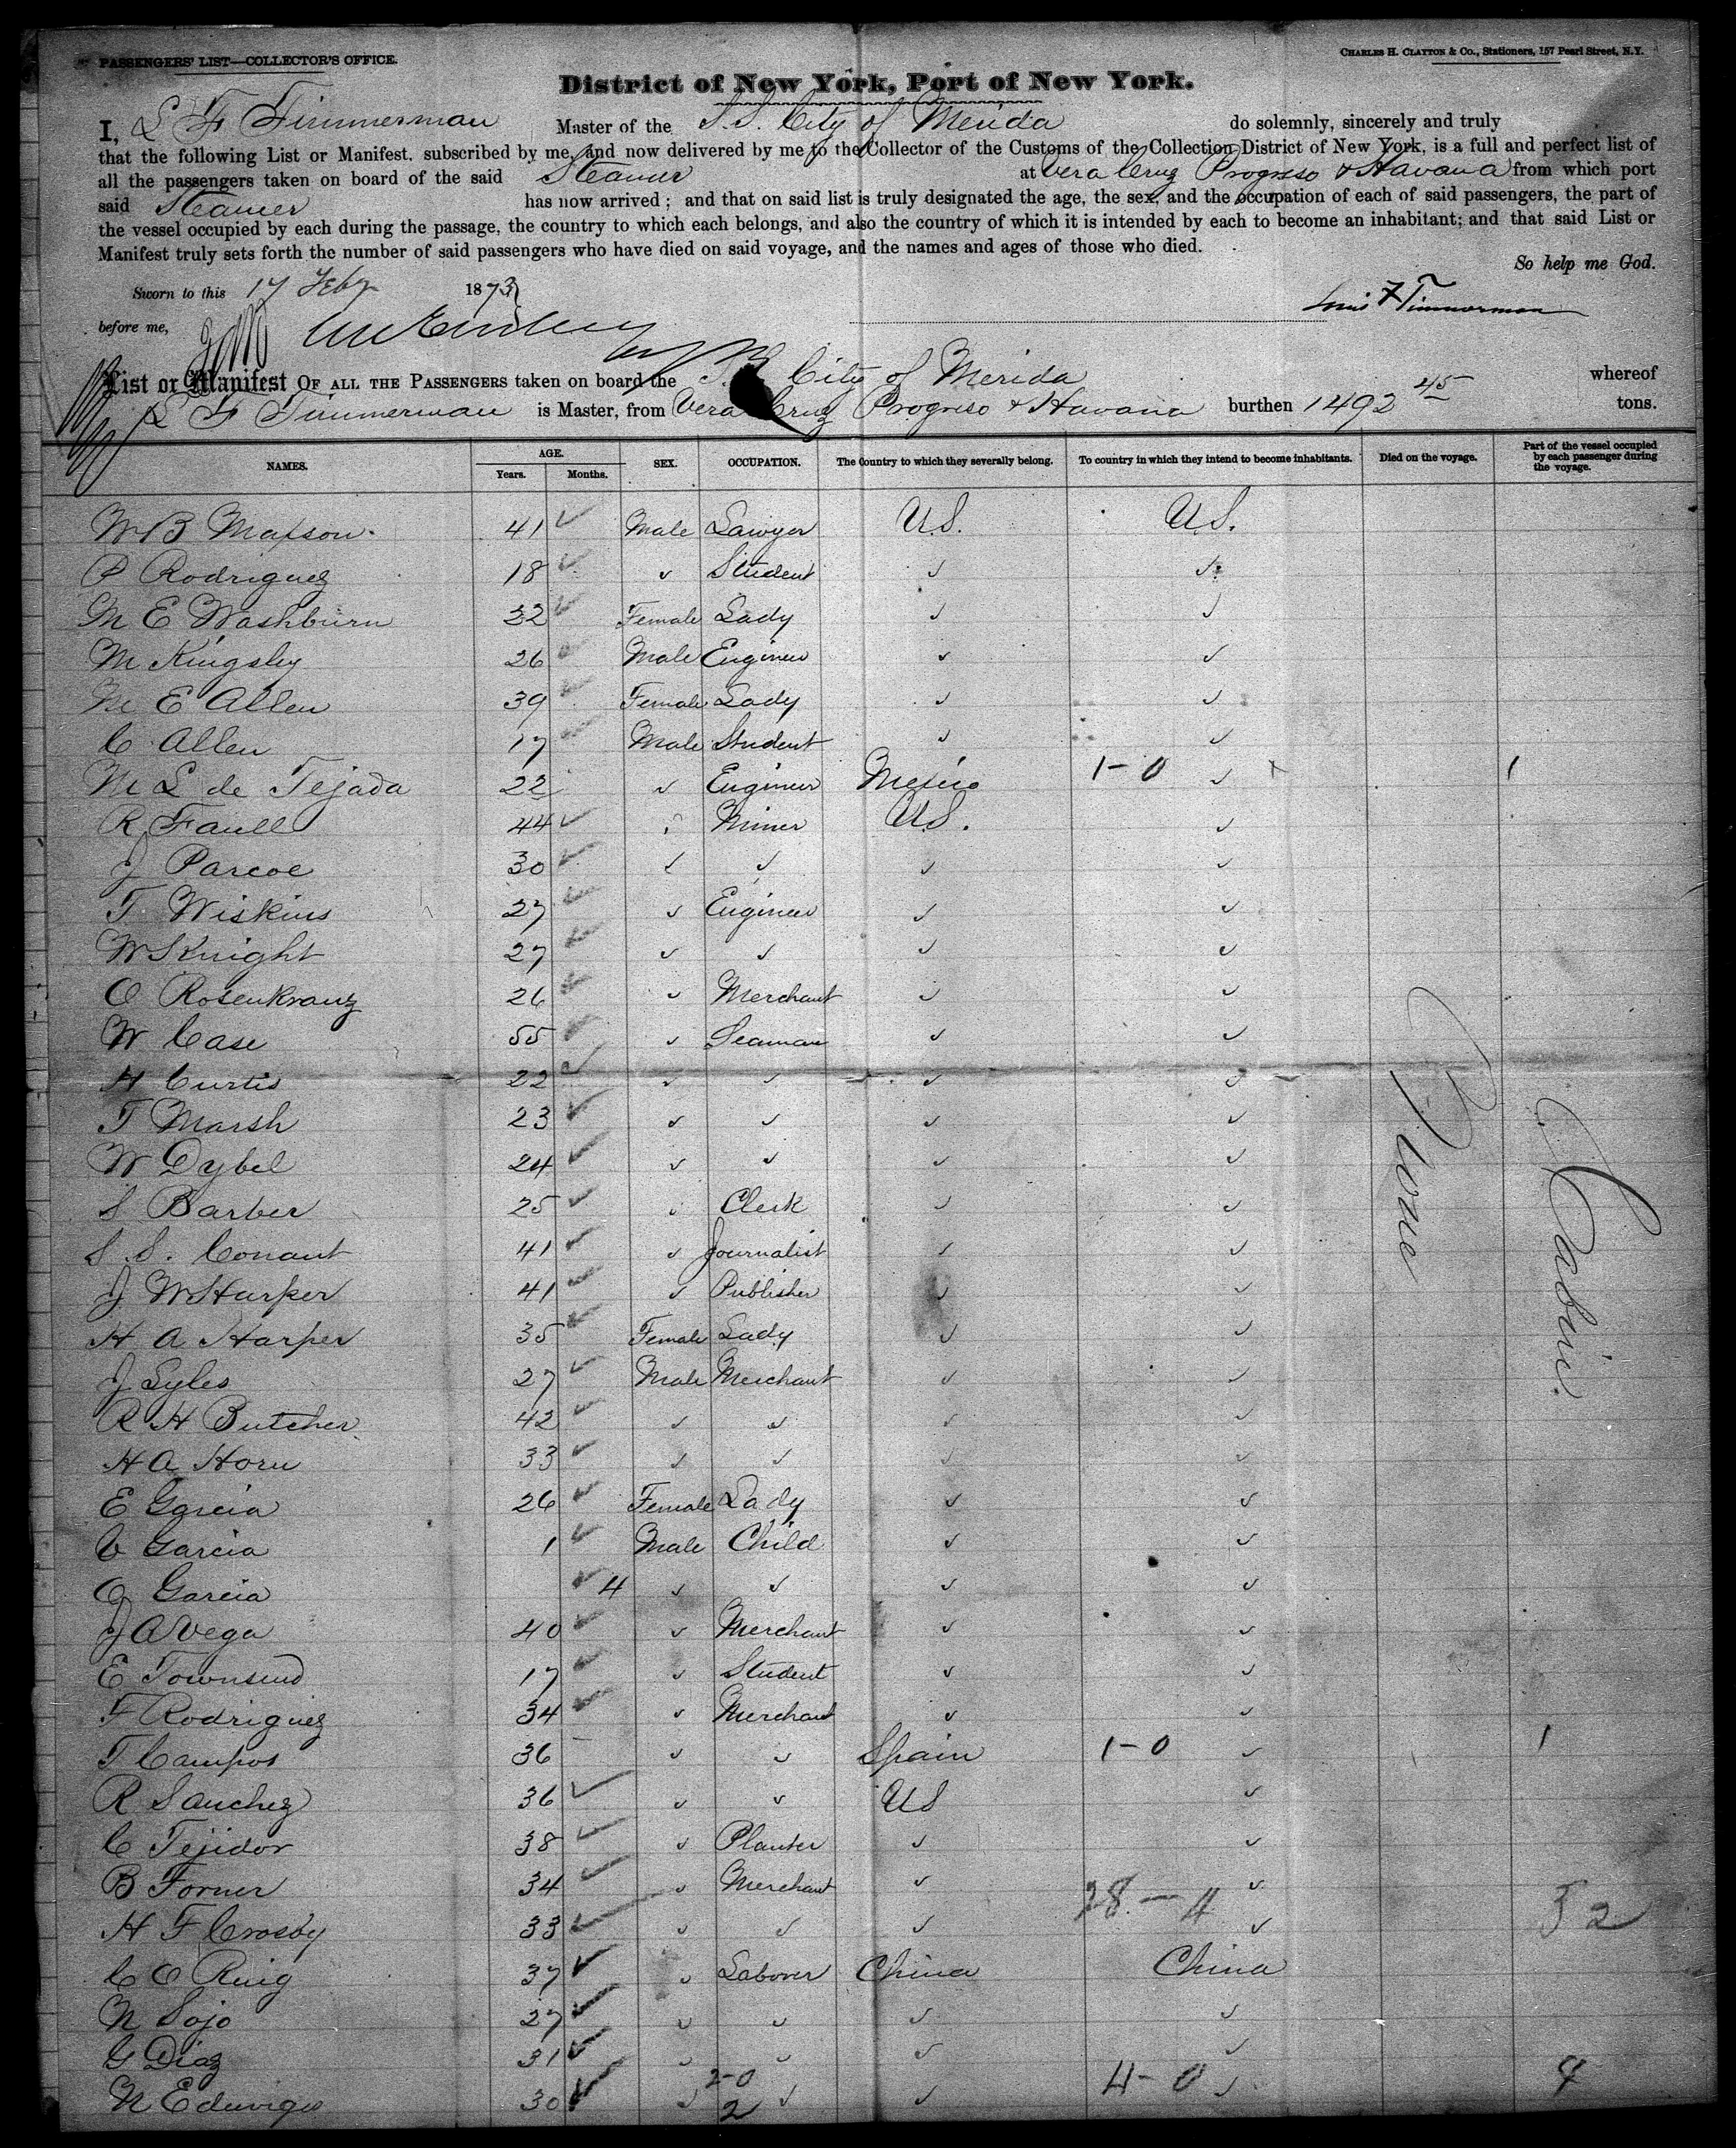 PASSENGERS' LIST—COLLECTOR'S OFFICE.
CHARLES H. CLAYTON & Co., Stationers, 157 Pearl Street, N.Y.
District of New York, Port of New York.
I, L F Timmerman Master of the S.S. City of Merida do solemnly, sincerely and truly
that the following List or Manifest, subscribed by me, and now delivered by me to the Collector of the Customs of the Collection District of New York, is a full and perfect list of
all the passengers taken on board of the said Steamer at Vera Cruz Progreso & Havana from which port
said Steamer has now arrived; and that on said list is truly designated the age, the sex, and the occupation of each of said passengers, the part of
the vessel occupied by each during the passage, the country to which each belongs, and also the country of which it is intended by each to become an inhabitant; and that said List or
Manifest truly sets forth the number of said passengers who have died on said voyage, and the names and ages of those who died.
So help me God.
Sworn to this 17 Feby 1873
before me, Louis F Timmerman
List or Manifest OF ALL THE PASSENGERS taken on board the S.S. City of Merida whereof
L F Timmerman is Master, from Vera Cruz Progreso & Havana burthen 1492 45 tons.
NAMES. AGE. Years. Months. SEX. OCCUPATION. The Country to which they severally belong. To country in which they intend to become inhabitants. Died on the voyage. Part of the vessel occupied by each passenger during the voyage.
W B Maxson 41 Male Lawyer U.S. U.S.
P Rodriguez 18 Student
M E Washburn 32 Female Lady
M Kingsley 26 Male Engineer
M E Allen 39 Female Lady
C Allen 17 Male Student
M L de Tejada 22 Engineer Mexico 1-0 1
R Faull 44 Miner U.S.
J Pascoe 30
T Wiskins 27 Engineer
W Knight 27
O Rosenkranz 26 Merchant
W Case 55 Seaman
H Curtis 22
T Marsh 23
W Dybel 24
S Barber 25 Clerk
S. S. Conant 41 Journalist
J W Harper 41 Publisher
H A Harper 35 Female Lady
J Lyles 27 Male Merchant
R H Butcher 42
H A Horn 33
E Garcia 26 Female Lady
C Garcia 1 Male Child
O Garcia 4
J A Vega 40 Merchant
E Townsend 17 Student
F Rodriguez 34 Merchant
T Campos 36 Spain 1-0 1
R Sanchez 36 US
C Tejidor 38 Planter
B Forner 34 Merchant
28-4 32
H F Crosby 33
C O Ruig 37 Laborer China China
N Sojo 27
G Diaz 31
N Eduviges 30 2-0 2 4-0 4
None
Cabin.